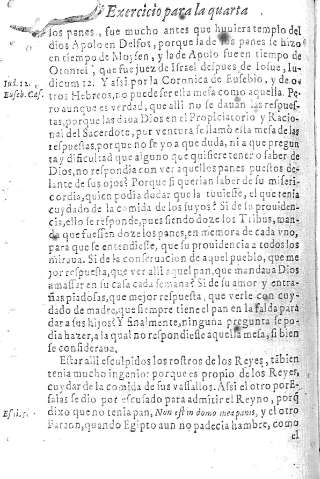 Exercicio para la quarta
los panes, fue mucho antes que huuiera templo del
dios Apolo en Delfos, porque la de los panes se hizo
en tiempo de Moysen, y la de Apolo fue en tiempo de
Otoniel, que fue juez de Israel despues de Iosue, Iu-
dicum 12. Y assi por la Coronica de Eusebio, y de o-
tros Hebreos, no puede ser ella mesa como aquella. Pe-
ro aunque es verdad, que alli no se dauan las respues-
tas, porque las daua Dios en el Propiciatorio y Racio-
nal del Sacerdote, por ventura se llamò ella mesa de las
respuestas, porque no se yo a que duda, ni a que pregun
ta y dificultad que alguno que quisiere tener o saber de
Dios, no respondia con ver aquellos panes puestos de-
lante de sus ojos? Porque si querian saber de su miseri-
cordia, quien podia dudar que la tuuiesse, el que tenia
cuydado de la comida de los suyos? Si de su prouiden-
cia, ello se responde, pues siendo doze los Tribus, man-
da que fuessen doze los panes, en memoria de cada vno,
para que se entendiesse, que su prouidencia a todos los
miraua. Si de la conseruacion de aquel pueblo, que me
jor respuesta, que ver alli aquel pan, que mandaua Dios
amassar en su casa cada semana? Si de su amor y entra-
ñas piadosas, que mejor respuesta, que verle con cuy-
dado de madre, que siempre tiene el pan en la falda para
dar a sus hijos? Y finalmente, ninguna pregunta se po-
dia hazer, a la qual no respondiesse aquella mesa, si bien
se consideraua.
Estar alli esculpidos los rostros de los Reyes, tābien
tenia mucho ingenio: porque es propio de los Reyes,
cuydar de la comida de sus vassallos. Assi el otro por E-
saias se dio por escusado para admitir el Reyno, porq̃
dixo que no tenia pan, Non est in domo mea panis, y el otro
Faraon, quando Egipto aun no padecia hambre, como
el
Iud. 12.
Euseb. Cæs.
Esai. 3.